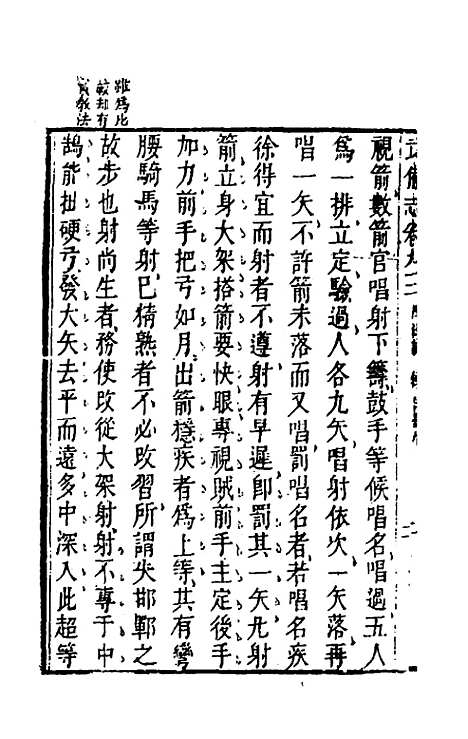 武備志卷九十三
視箭數箭官唱射下籌鼓手等候唱名唱過五人
爲一排立定驗過人各九矢唱射依次一矢落再
唱一矢不許箭未落而又唱罰唱名者若唱名疾
徐得宜而射者不遵射有早遲卽罰其一矢凡射
箭立身大架搭箭要快眼專視賊前手主定後手
加力前手把弓如月出箭穩疾者爲上等其有彎
腰騎馬等射巳精熟者不必改習所謂失邯鄲之
故步也射尚生者務使改從大架射射不專于中
鵠能拙硬弓發大矢去平而遠多中深入此超等
雖爲比
較却有
教法